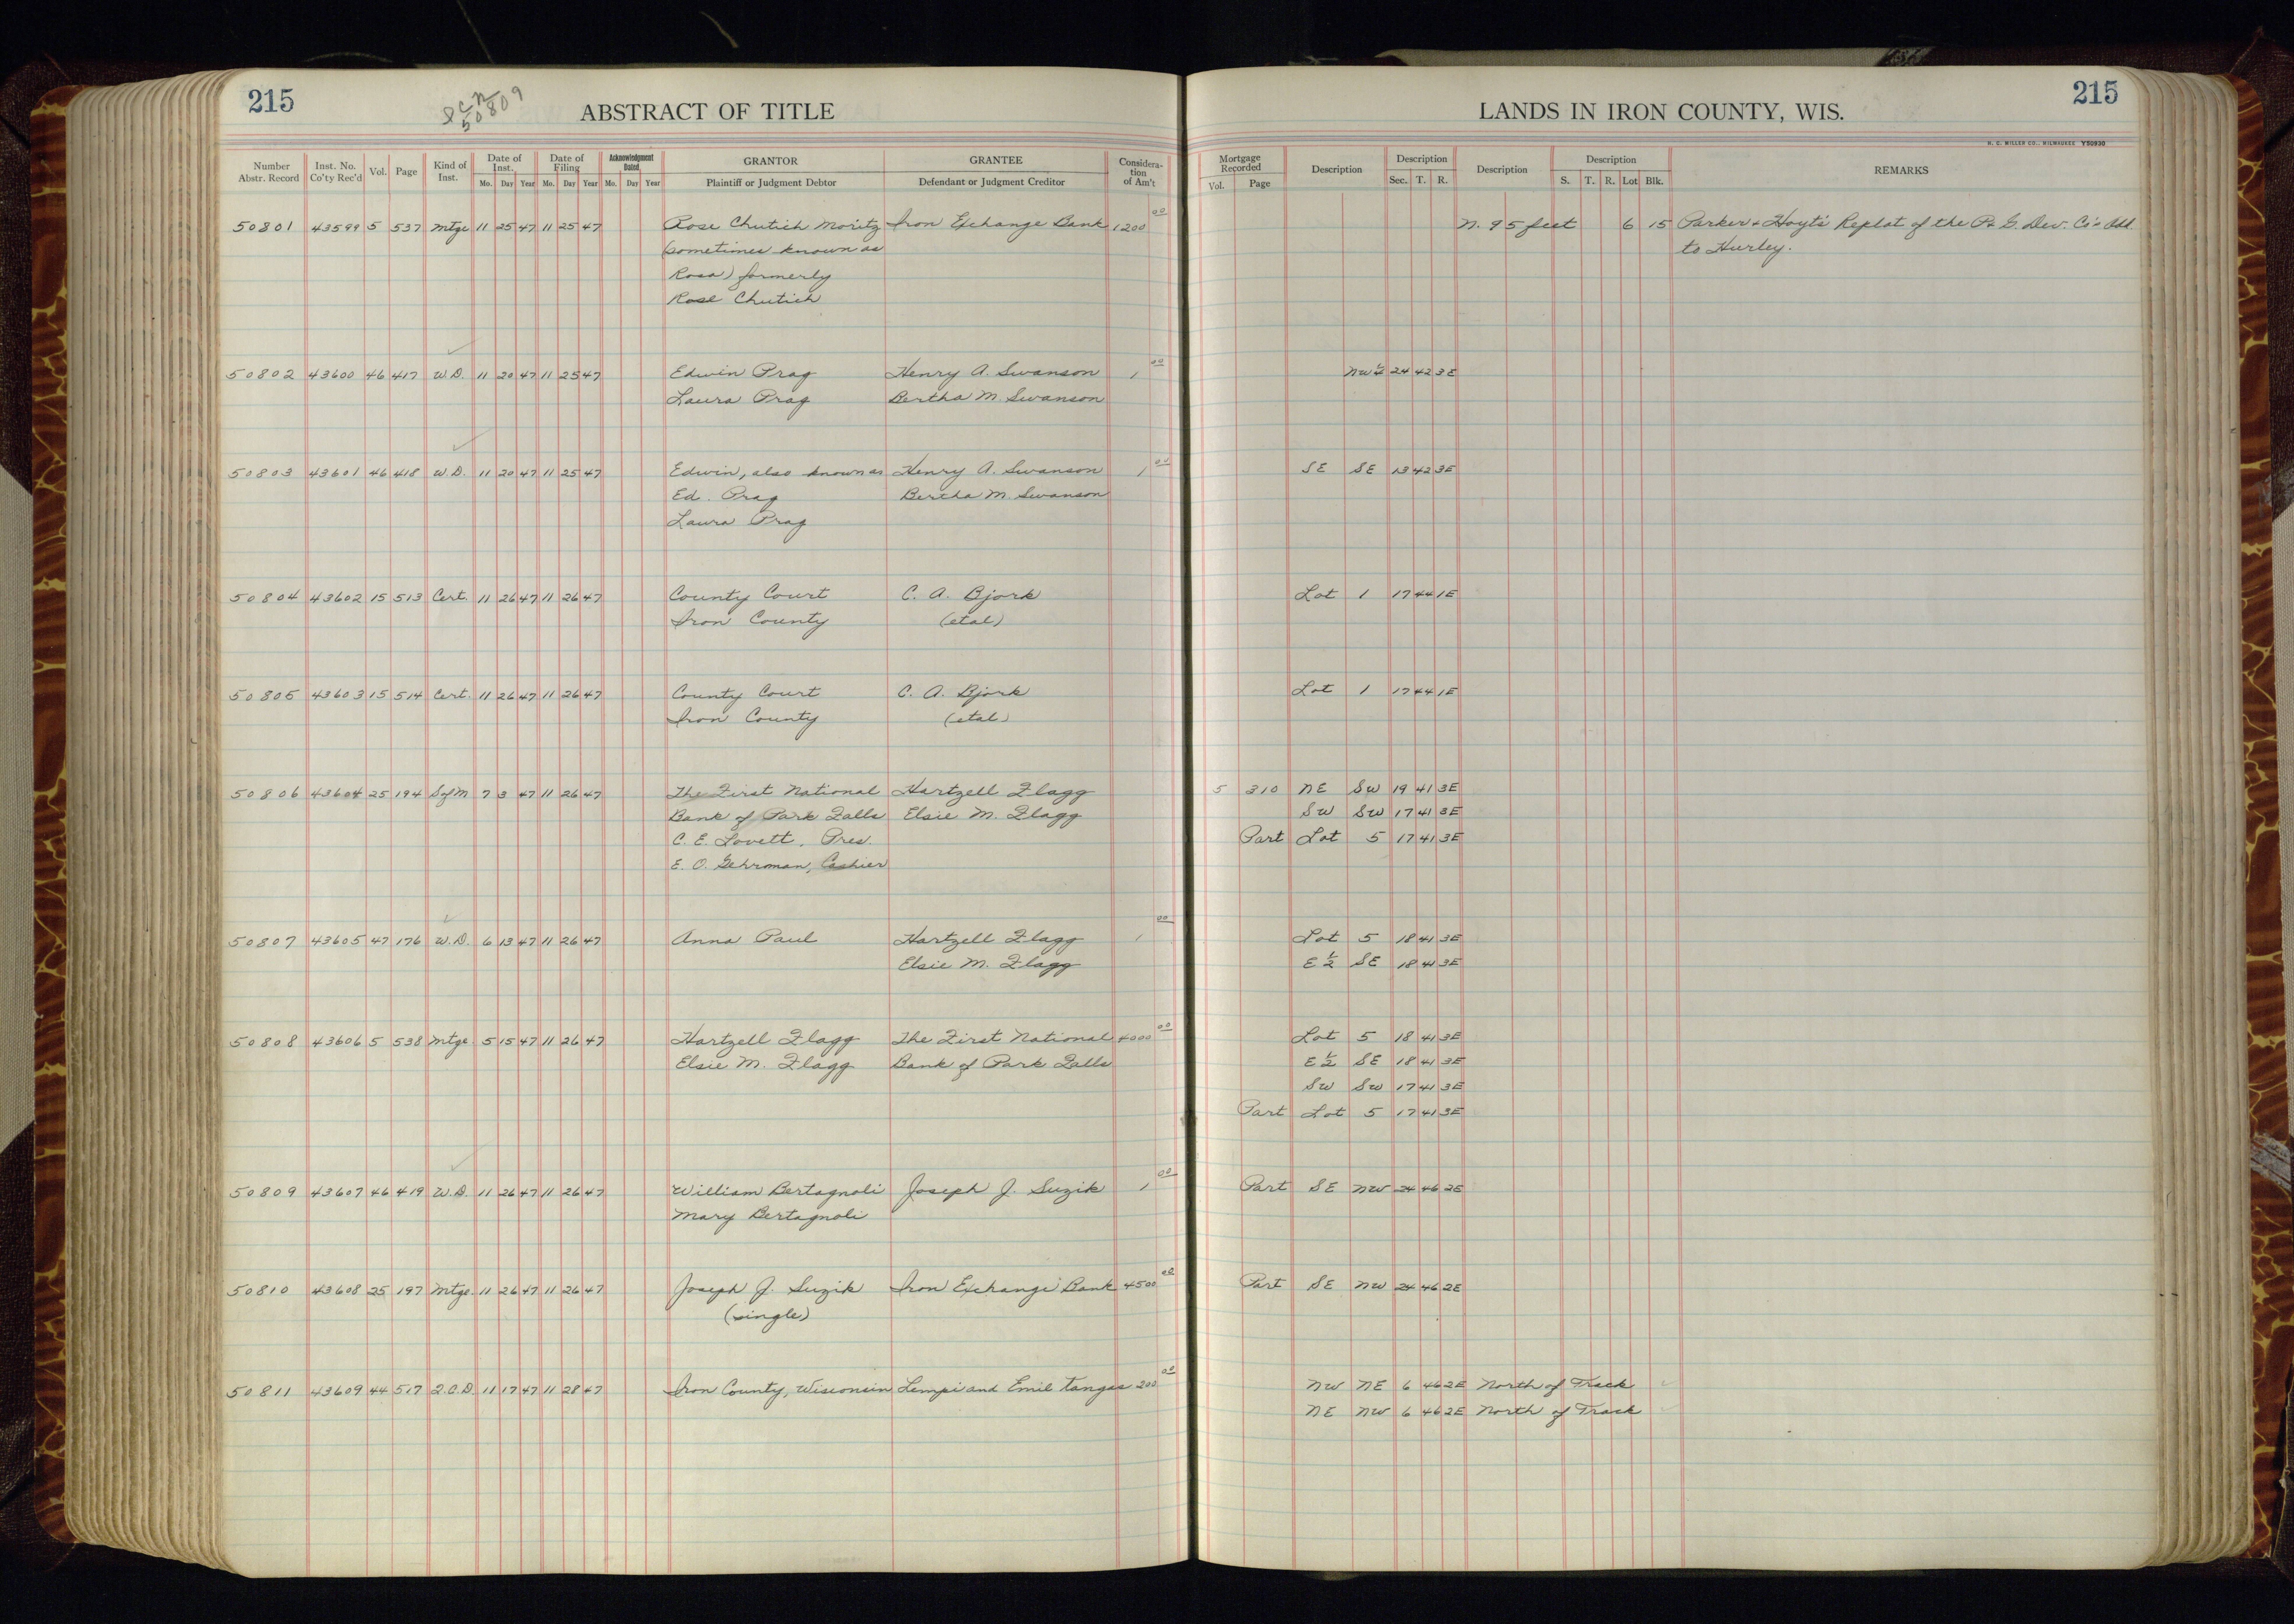 215
50809
ABSTRACT OF TITLE
LANDS IN IRON COUNTY, WIS.
215
H. C. MILLER CO., MILWAUKEE Y50930
Number Abstr. Record | Inst. No. Co'ty Rec'd | Vol. | Page | Kind of Inst. | Date of Inst. Mo. Day Year | Date of Filing Mo. Day Year | Acknowledgment Dated Mo. Day Year | GRANTOR Plaintiff or Judgment Debtor | GRANTEE Defendant or Judgment Creditor | Consideration of Am't | Mortgage Recorded Vol. Page | Description | Description Sec. T. R. | Description | Description S. T. R. Lot Blk. | REMARKS
50801 43599 5 537 Mtge 11 25 47 11 25 47 Rose Chutich Moritz Iron Exchange Bank 1200 00 N. 95 feet 6 15 Parker & Hoyt's Replat of the P. & G. Dev. Co's Add.
(sometimes known as to Hurley.
Rosa) formerly
Rose Chutich
50802 43600 46 417 W.D. 11 20 47 11 25 47 Edwin Prag Henry A. Swanson 1 00 NW¼ 24 42 3E
Laura Prag Bertha M. Swanson
50803 43601 46 418 W.D. 11 20 47 11 25 47 Edwin, also known as Henry A. Swanson 1 00 SE SE 13 42 3E
Ed. Prag Bertha M. Swanson
Laura Prag
50804 43602 15 513 Cert. 11 26 47 11 26 47 County Court C. A. Bjork Lot 1 17 44 1E
Iron County (etal)
50805 43603 15 514 Cert. 11 26 47 11 26 47 County Court C. A. Bjork Lot 1 17 44 1E
Iron County (etal)
50806 43604 25 194 S of M 7 3 47 11 26 47 The First National Hartzell Flagg 5 310 NE SW 19 41 3E
Bank of Park Falls Elsie M. Flagg SW SW 17 41 3E
C. E. Lovett, Pres. Part Lot 5 17 41 3E
E. O. Gehrman, Cashier
50807 43605 47 176 W.D. 6 13 47 11 26 47 Anna Paul Hartzell Flagg 1 00 Lot 5 18 41 3E
Elsie M. Flagg E½ SE 18 41 3E
50808 43606 5 538 Mtge. 5 15 47 11 26 47 Hartzell Flagg The First National 4000 00 Lot 5 18 41 3E
Elsie M. Flagg Bank of Park Falls E½ SE 18 41 3E
SW SW 17 41 3E
Part Lot 5 17 41 3E
50809 43607 46 419 W.D. 11 26 47 11 26 47 William Bertagnoli Joseph J. Suzik 1 00 Part SE NW 24 46 2E
Mary Bertagnoli
50810 43608 25 197 Mtge. 11 26 47 11 26 47 Joseph J. Suzik Iron Exchange Bank 4500 00 Part SE NW 24 46 2E
(single)
50811 43609 44 517 Q.C.D. 11 17 47 11 28 47 Iron County, Wisconsin Lempi and Emil Tangas 200 00 NW NE 6 46 2E North of Track
NE NW 6 46 2E North of Track